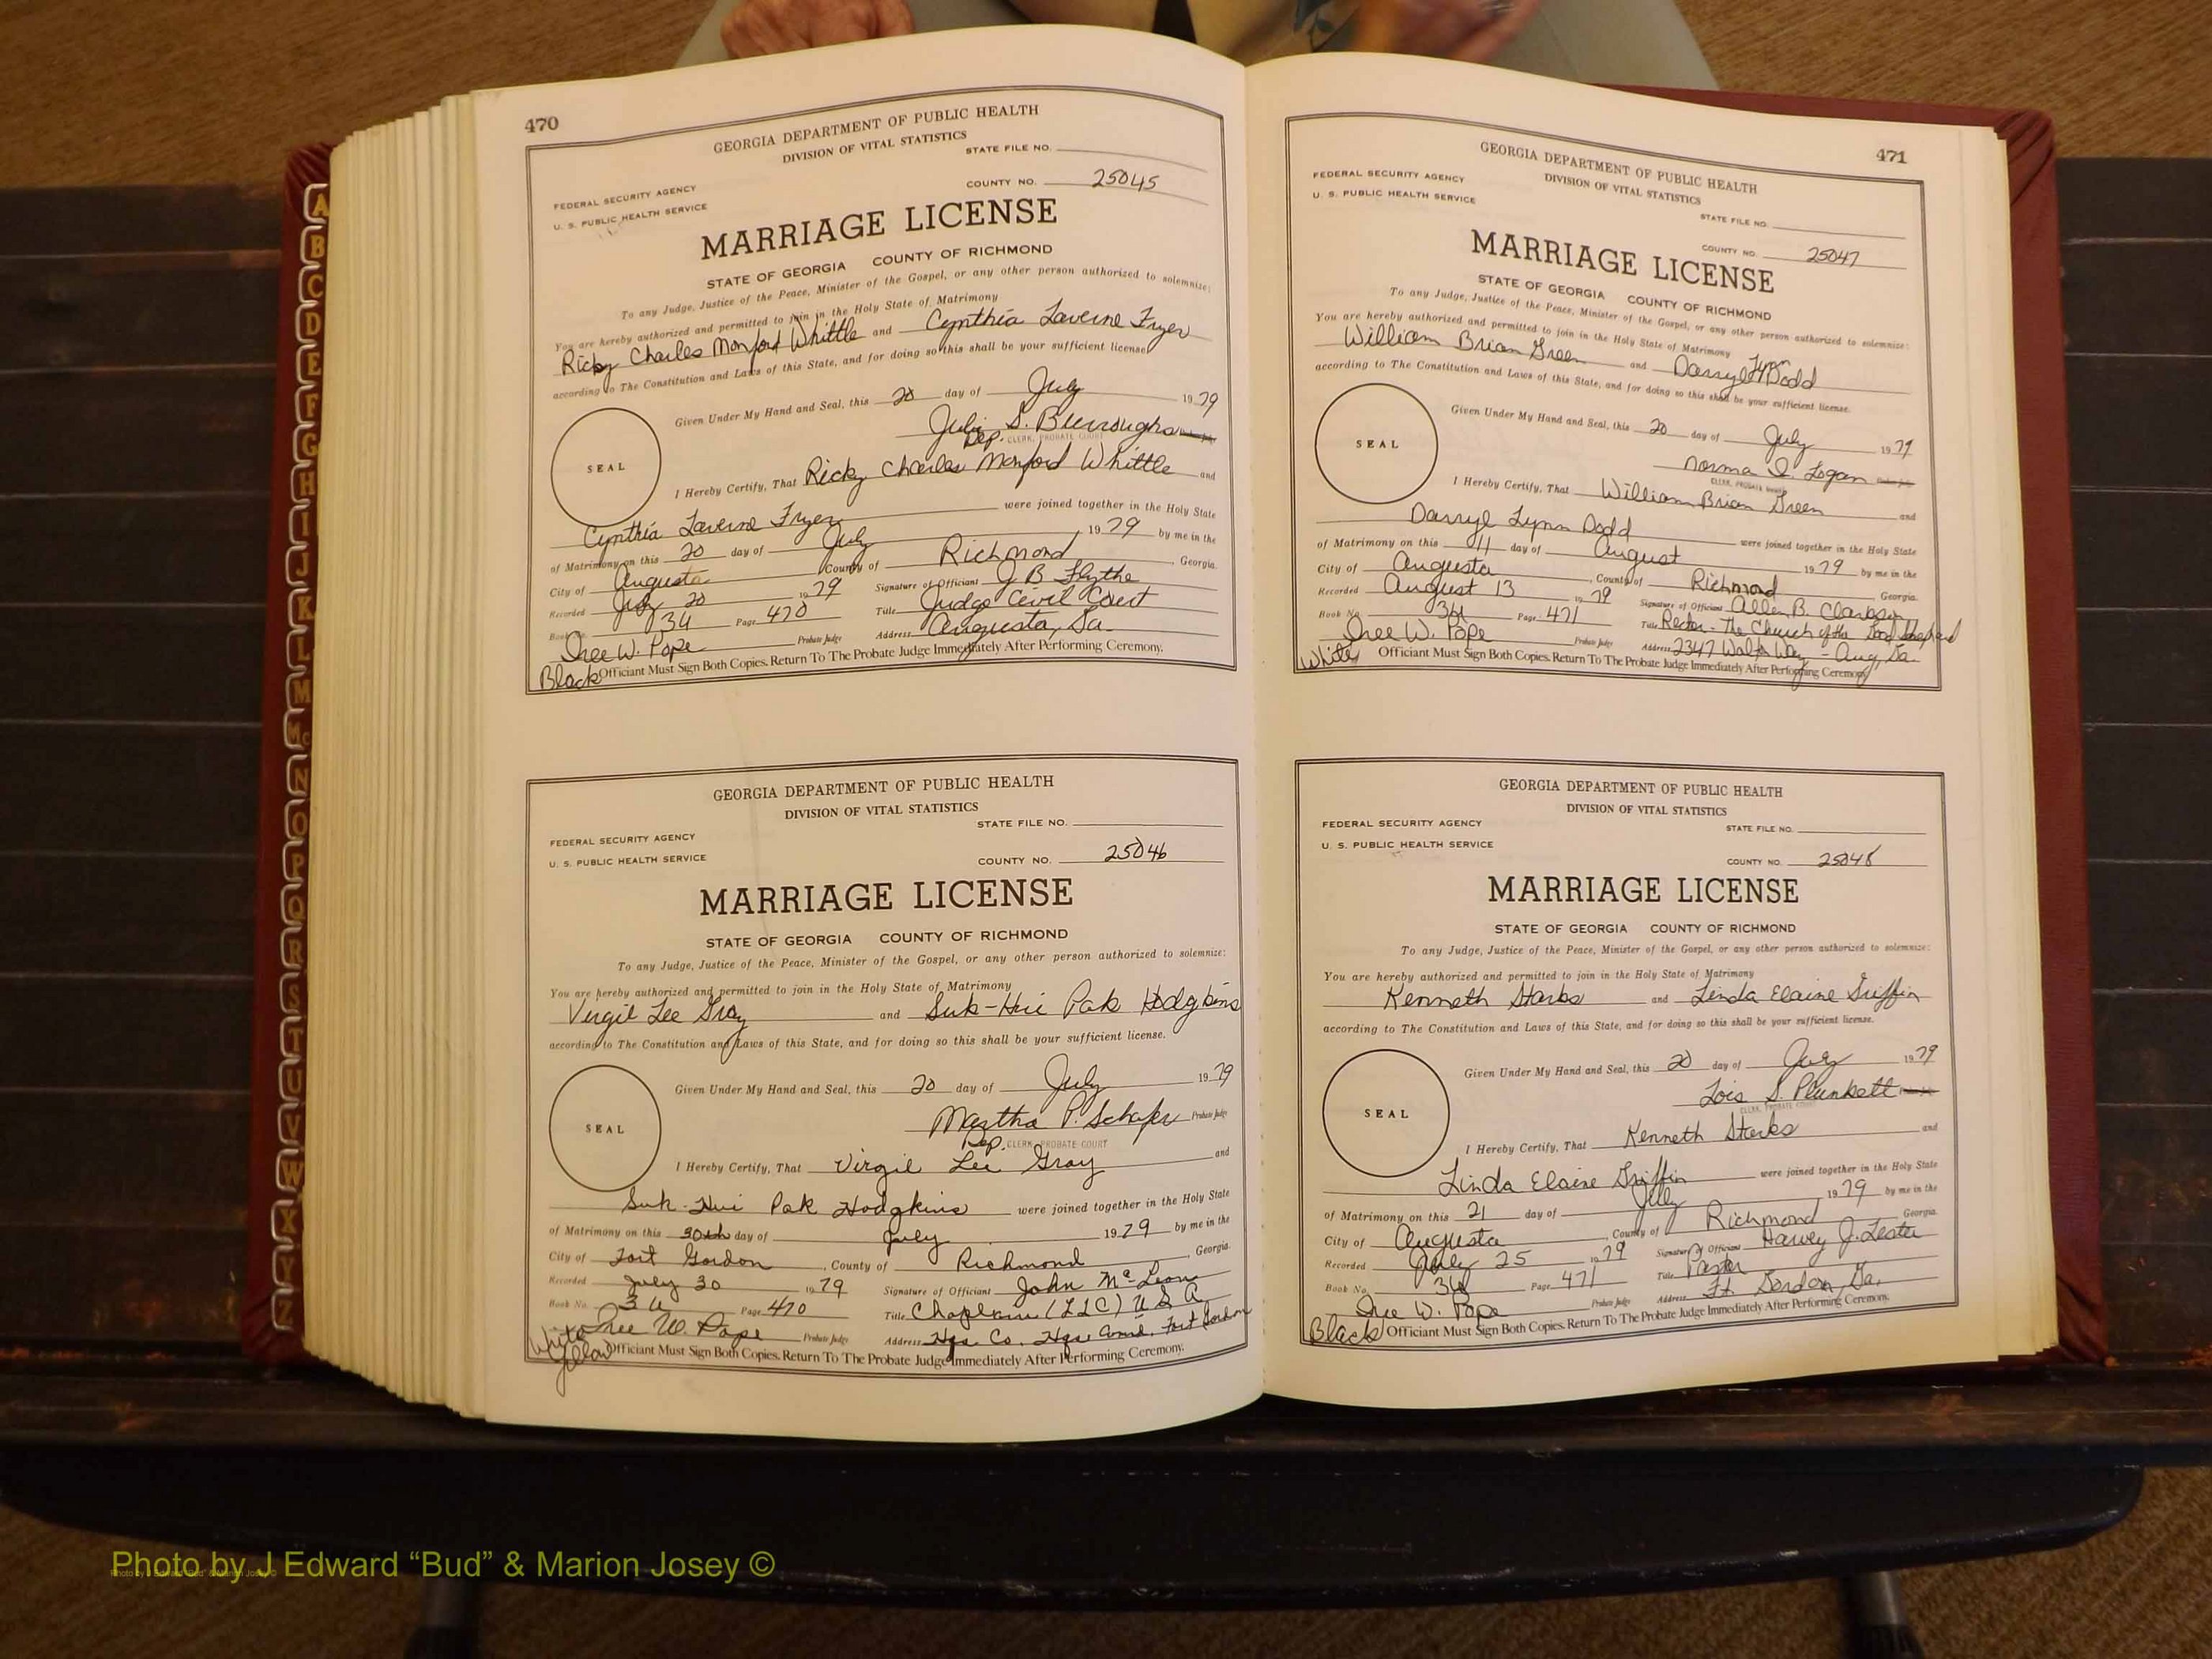 A
B
C
D
E
F
G
H
I
J
K
L
M
Mc
N
O
P
Q
R
S
T
U
V
W
X
Y
Z
470
GEORGIA DEPARTMENT OF PUBLIC HEALTH
DIVISION OF VITAL STATISTICS
STATE FILE NO.
FEDERAL SECURITY AGENCY
COUNTY NO. 25045
U. S. PUBLIC HEALTH SERVICE
MARRIAGE LICENSE
STATE OF GEORGIA COUNTY OF RICHMOND
To any Judge, Justice of the Peace, Minister of the Gospel, or any other person authorized to solemnize:
You are hereby authorized and permitted to join in the Holy State of Matrimony
Ricky Charles Monford Whittle and Cynthia Laverne Fryer
according to The Constitution and Laws of this State, and for doing so this shall be your sufficient license.
Given Under My Hand and Seal, this 20 day of July 1979
Julie S. Burroughs
Dep. CLERK, PROBATE COURT
SEAL
I Hereby Certify, That Ricky Charles Monford Whittle and
Cynthia Laverne Fryer were joined together in the Holy State
of Matrimony on this 20 day of July 1979 by me in the
City of Augusta County of Richmond, Georgia.
Recorded July 20 1979 Signature of Officiant J B Flythe
Book No. 34 Page 470 Title Judge Civil Court
Iree W. Pope Probate Judge Address Augusta, Ga.
Black Officiant Must Sign Both Copies. Return To The Probate Judge Immediately After Performing Ceremony.
GEORGIA DEPARTMENT OF PUBLIC HEALTH
DIVISION OF VITAL STATISTICS
STATE FILE NO.
FEDERAL SECURITY AGENCY
U. S. PUBLIC HEALTH SERVICE
COUNTY NO. 25046
MARRIAGE LICENSE
STATE OF GEORGIA COUNTY OF RICHMOND
To any Judge, Justice of the Peace, Minister of the Gospel, or any other person authorized to solemnize:
You are hereby authorized and permitted to join in the Holy State of Matrimony
Virgil Lee Gray and Suk-Hui Pak Hodgkins
according to The Constitution and Laws of this State, and for doing so this shall be your sufficient license.
Given Under My Hand and Seal, this 20 day of July 1979
Martha P. Schafer Probate Judge
Dep. CLERK, PROBATE COURT
SEAL
I Hereby Certify, That Virgil Lee Gray and
Suk-Hui Pak Hodgkins were joined together in the Holy State
of Matrimony on this 30th day of July 1979 by me in the
City of Fort Gordon, County of Richmond, Georgia
Recorded July 30 1979 Signature of Officiant John McLeon
Book No. 34 Page 470 Title Chaplain (LTC) USA
Iree W. Pope Probate Judge Address Hqs. Co., Hqs. Comd, Fort Gordon
White
Yellow Officiant Must Sign Both Copies. Return To The Probate Judge Immediately After Performing Ceremony.
471
GEORGIA DEPARTMENT OF PUBLIC HEALTH
DIVISION OF VITAL STATISTICS
FEDERAL SECURITY AGENCY
U. S. PUBLIC HEALTH SERVICE
STATE FILE NO.
COUNTY NO. 25047
MARRIAGE LICENSE
STATE OF GEORGIA COUNTY OF RICHMOND
To any Judge, Justice of the Peace, Minister of the Gospel, or any other person authorized to solemnize:
You are hereby authorized and permitted to join in the Holy State of Matrimony
William Brian Green and Darryl Lynn Dodd
according to The Constitution and Laws of this State, and for doing so this shall be your sufficient license.
Given Under My Hand and Seal, this 20 day of July 1979
Norma I. Logan
CLERK, PROBATE COURT
SEAL
I Hereby Certify, That William Brian Green and
Darryl Lynn Dodd were joined together in the Holy State
of Matrimony on this 11 day of August 1979 by me in the
City of Augusta, County of Richmond Georgia.
Recorded August 13 1979 Signature of Officiant Allen B. Clarkson
Book No. 34 Page 471 Title Rector - The Church of the Good Shepherd
Iree W. Pope Probate Judge Address 2347 Walton Way - Aug, Ga.
White Officiant Must Sign Both Copies. Return To The Probate Judge Immediately After Performing Ceremony.
GEORGIA DEPARTMENT OF PUBLIC HEALTH
DIVISION OF VITAL STATISTICS
FEDERAL SECURITY AGENCY
STATE FILE NO.
U. S. PUBLIC HEALTH SERVICE
COUNTY NO. 25048
MARRIAGE LICENSE
STATE OF GEORGIA COUNTY OF RICHMOND
To any Judge, Justice of the Peace, Minister of the Gospel, or any other person authorized to solemnize:
You are hereby authorized and permitted to join in the Holy State of Matrimony
Kenneth Starks and Linda Elaine Griffin
according to The Constitution and Laws of this State, and for doing so this shall be your sufficient license.
Given Under My Hand and Seal, this 20 day of July 1979
Lois S. Plunkett
CLERK, PROBATE COURT
SEAL
I Hereby Certify, That Kenneth Starks and
Linda Elaine Griffin were joined together in the Holy State
of Matrimony on this 21 day of July 1979 by me in the
City of Augusta, County of Richmond Georgia.
Recorded July 25 1979 Signature of Officiant Harvey J. Lester
Book No. 34 Page 471 Title Pastor
Iree W. Pope Probate Judge Address Ft. Gordon, Ga.
Black Officiant Must Sign Both Copies. Return To The Probate Judge Immediately After Performing Ceremony.
Photo by J Edward "Bud" & Marion Josey ©